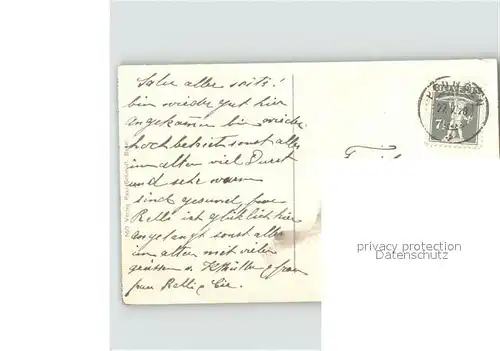 Salü alle soits!
bin wieder gut hier
angekommen bin wieder
hoch betrieb sonst alles
im alten viel Durst
und sehr warm
sind gesund, frau
Relli ist glücklich hier
angelangt sonst alles
im alten mit vielen
grüssen v. K Müller & frau
frau Relli & Cie.
7½
privacy protection
Datenschutz